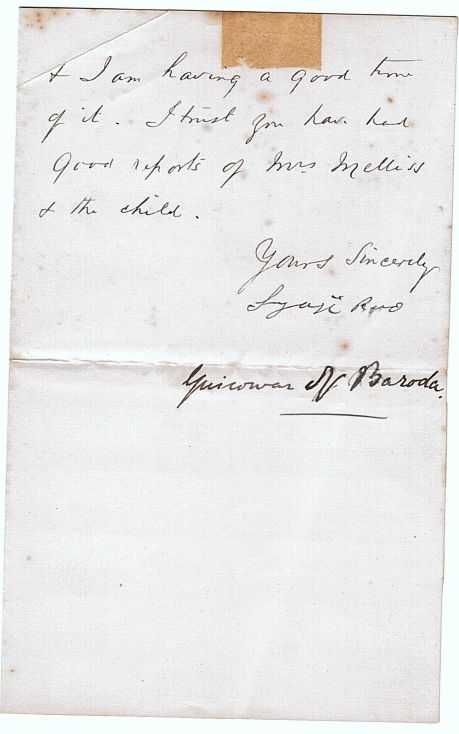 & I am having a good time
of it. I trust you have had
Good reports of Mrs Melliss
& the child.
Yours Sincerely
Syaji Rao
Guicowar of Baroda.